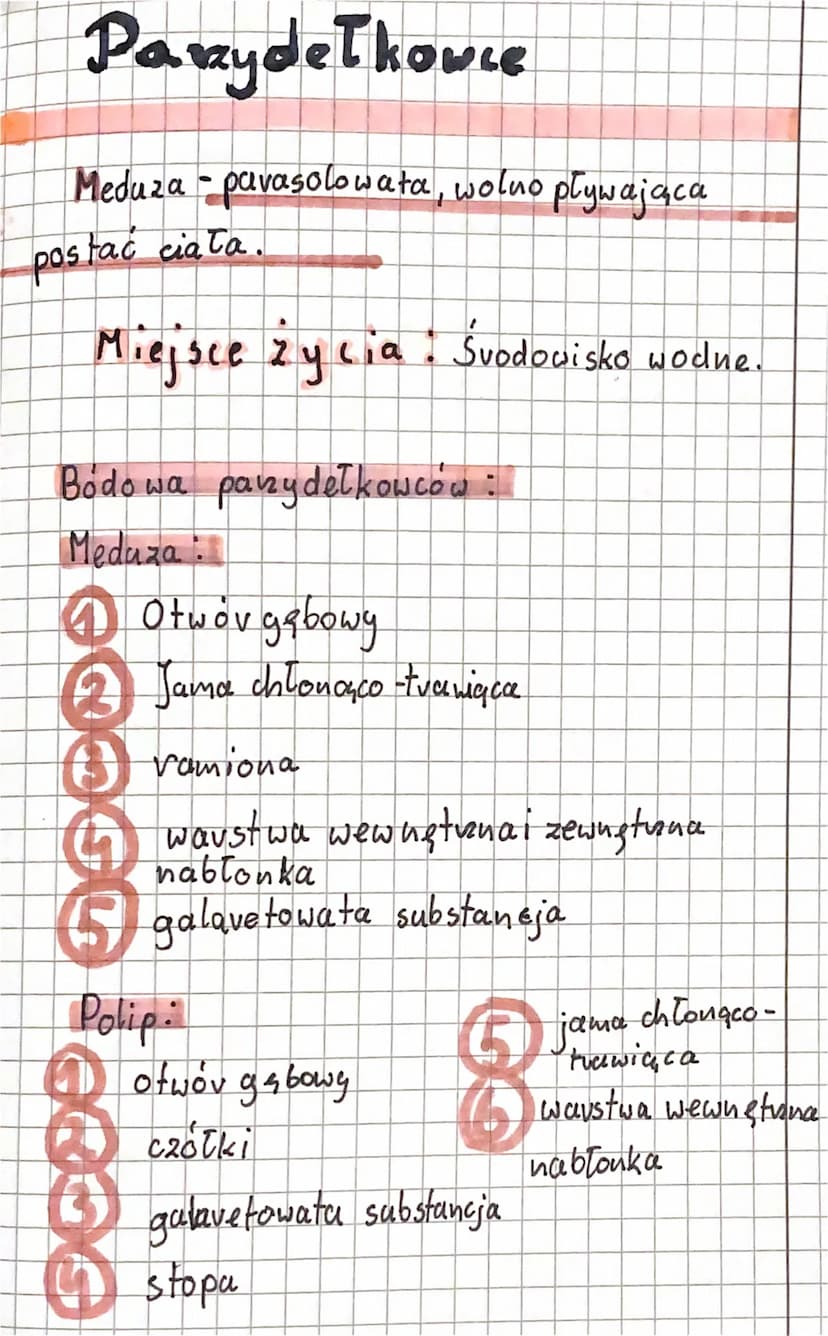 Parzydełkowce
Meduza - parasolowata, wolno pływająca
postać ciała.
Miejsce życia : Środowisko wodne.
Bódowa parzydełkowców :
Meduza :
1 Otwór gębowy
2 Jama chłonąco-trawiąca
3 ramiona
4 warstwa wewnętrzna i zewnętrzna
nabłonka
5 galaretowata substancja
Polip:
1 otwór gębowy
2 czółki
3 galaretowata substancja
4 stopa
5 jama chłonąco-
trawiąca
6 warstwa wewnętrzna
nabłonka